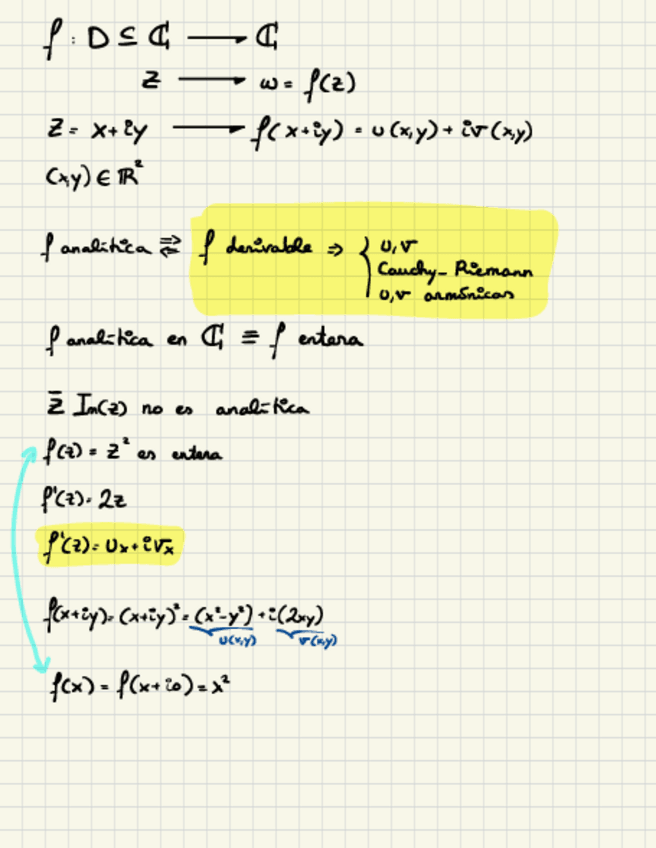 f : D ⊆ ℂ ⟶ ℂ
z ⟶ ω = f(z)
z = x+iy ⟶ f(x+iy) = u(x,y) + iv(x,y)
(x,y) ∈ ℝ²
f analítica ⇄ f derivable ⇒ { u,v
Cauchy-Riemann
u,v armónicas
f analítica en ℂ ≡ f entera
z̄ Im(z) no es analítica
f(z) = z² es entera
f'(z) = 2z
f'(z) = ux + ivx
f(x+iy) = (x+iy)² = (x²-y²) + i(2xy)
u(x,y) v(x,y)
f(x) = f(x+i0) = x²